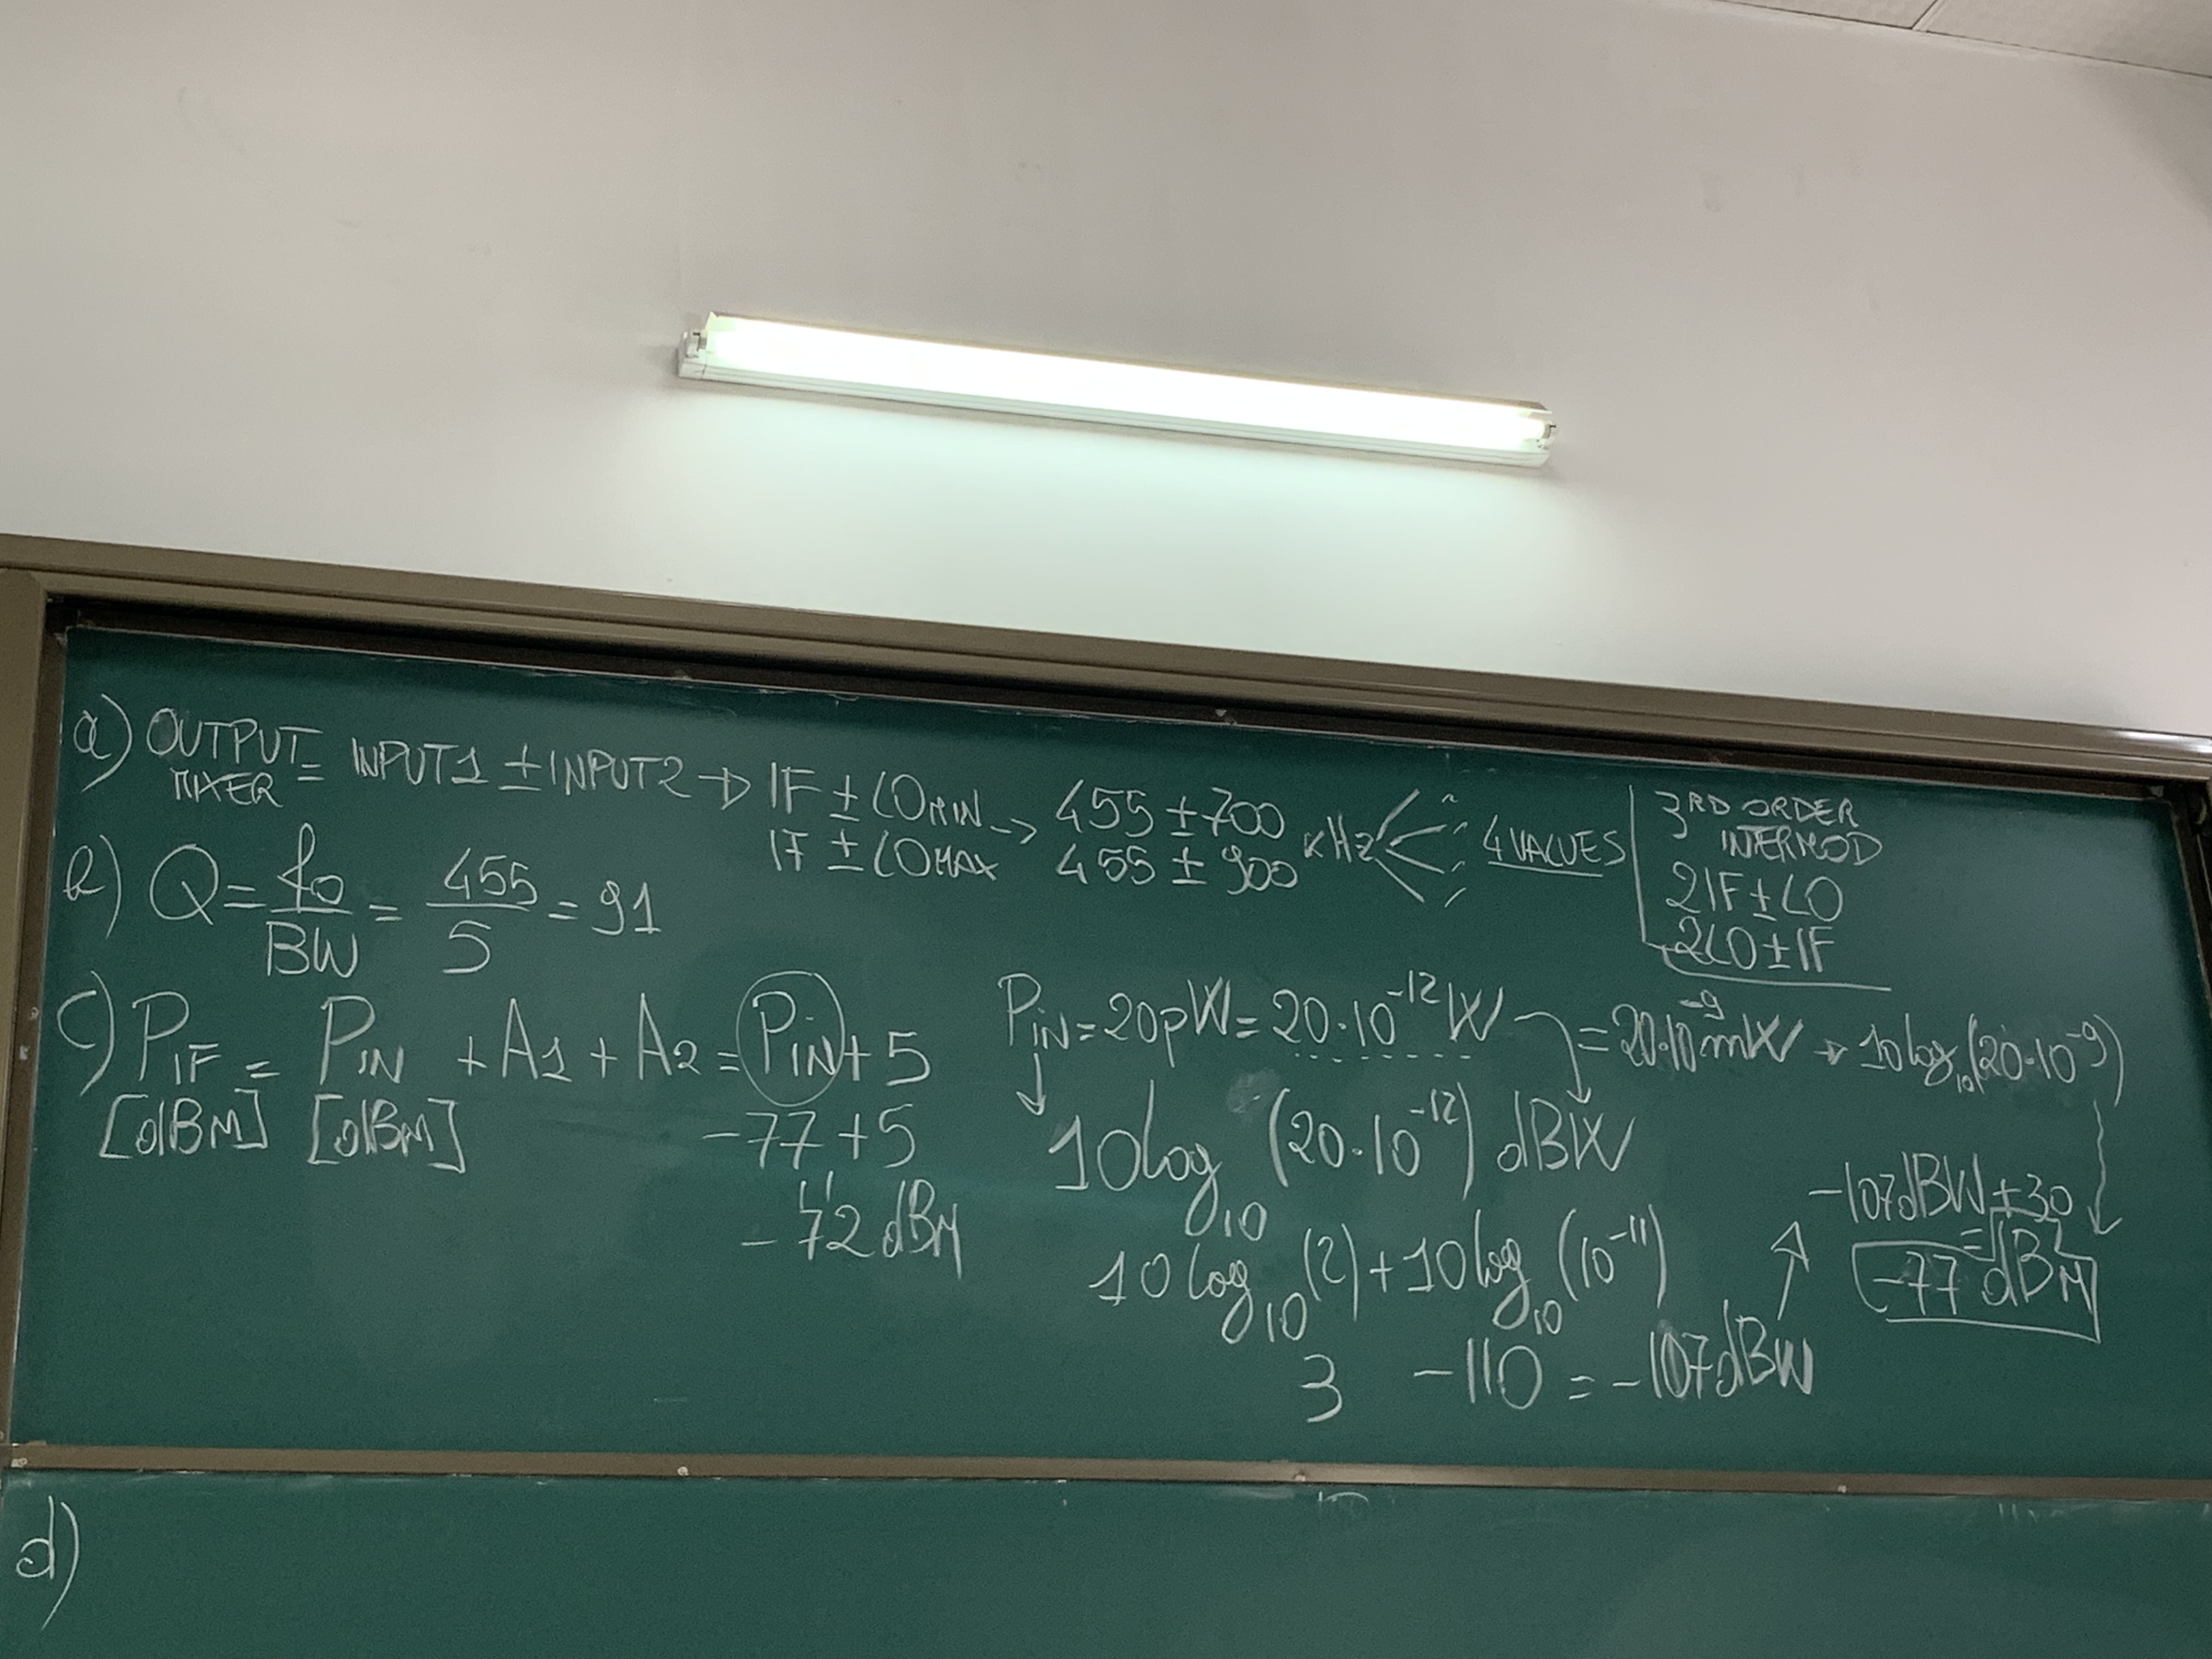 a) OUTPUT MIXER = INPUT1 ± INPUT2 → IF ± LOMIN → 455 ± 700 KHz 4 VALUES
IF ± LOMAX 455 ± 900
3RD ORDER
INTERMOD
2IF ± LO
2LO ± IF
b) Q = fo/BW = 455/5 = 91
c) PIF = PIN + A1 + A2 = PIN + 5
[dBM] [dBM] -77 + 5
-72 dBM
PIN = 20pW = 20·10^-12 W = 20·10^-9 mW → 10log10(20·10^-9)
10log10 (20·10^-12) dBW
10log10 (2) + 10log10 (10^-11)
3 -110 = -107dBW
-107dBW + 30
-77 dBM
d)